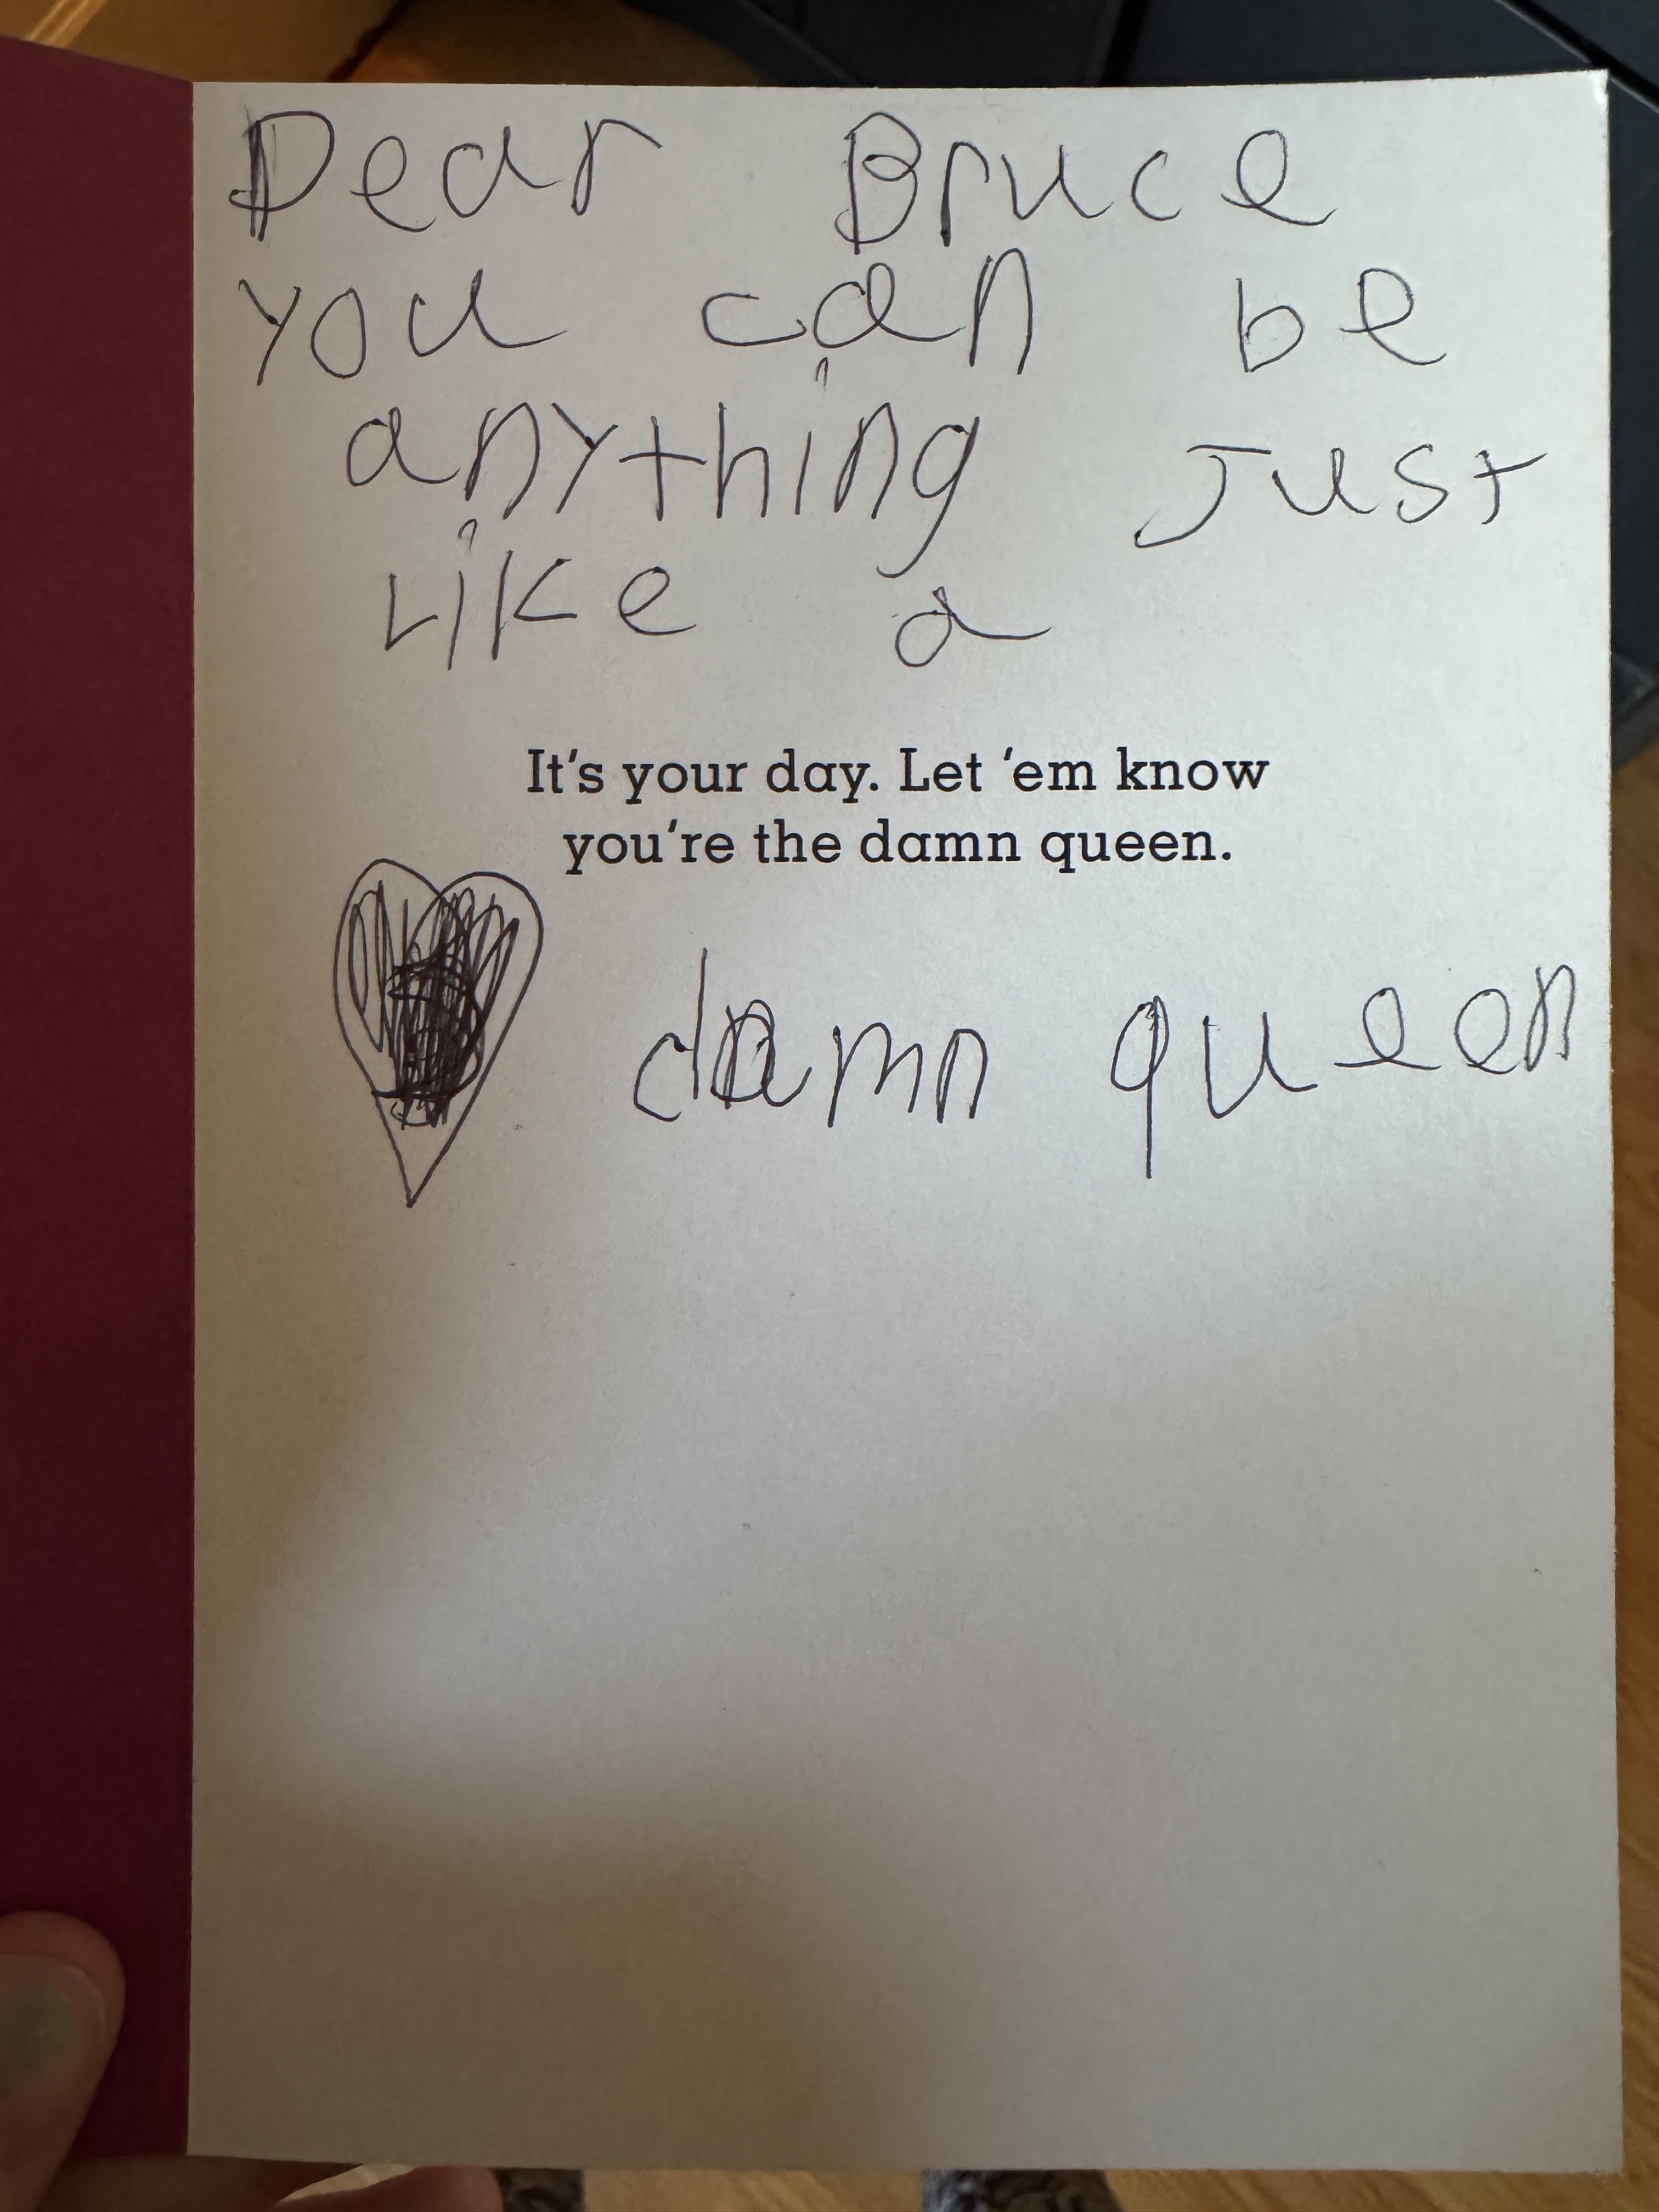 Dear Bruce
you can be
anything Just
Like a
It's your day. Let 'em know
you're the damn queen.
damn queen